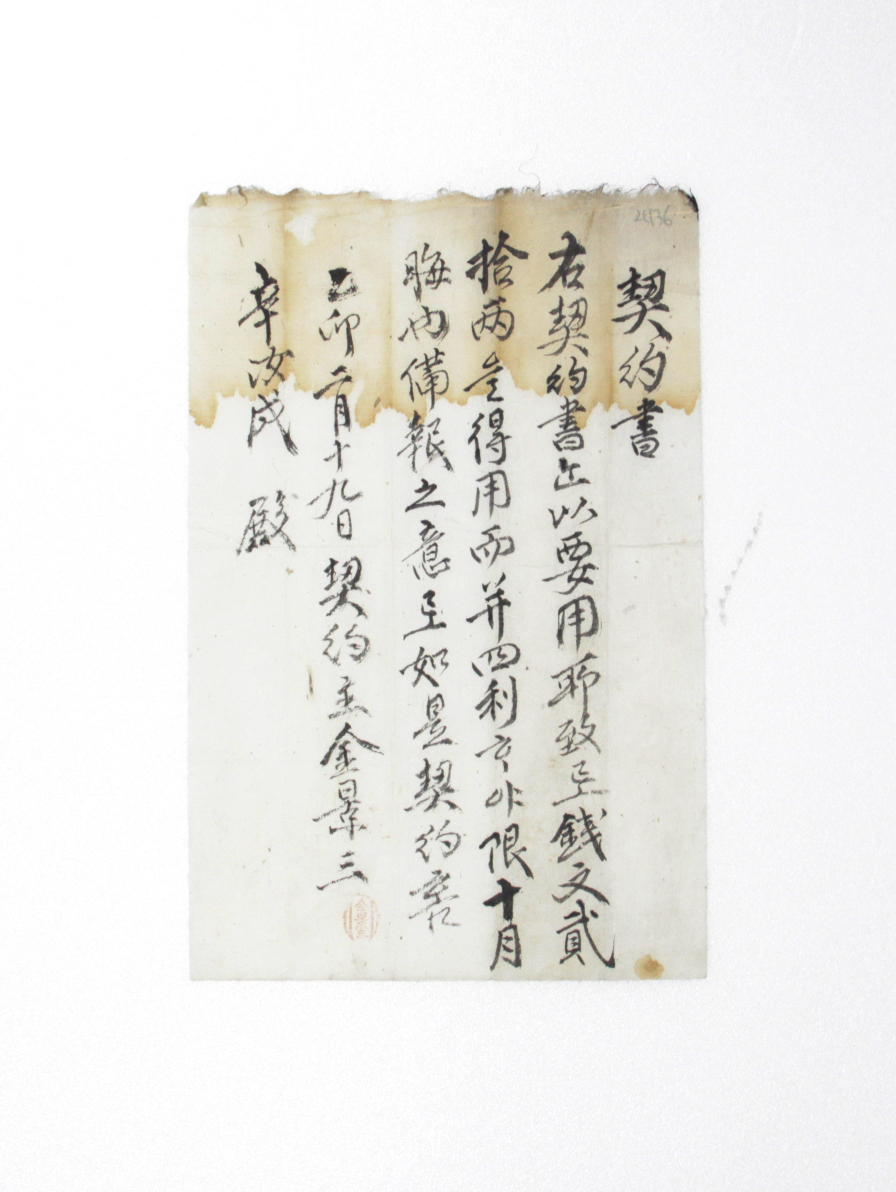 契約書
右契約書 以要用所致로錢文貳
拾兩 得用而并四利 限十月
晦內備報之意로如是契約事
乙卯二月十九日 契約主金景三
金景三
辛汝成 殿